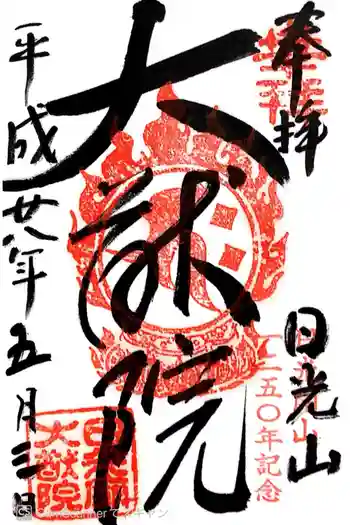 奉拝
日光山
一二五〇年記念
大猷院
平成廿八年五月三日
日光山
大猷院